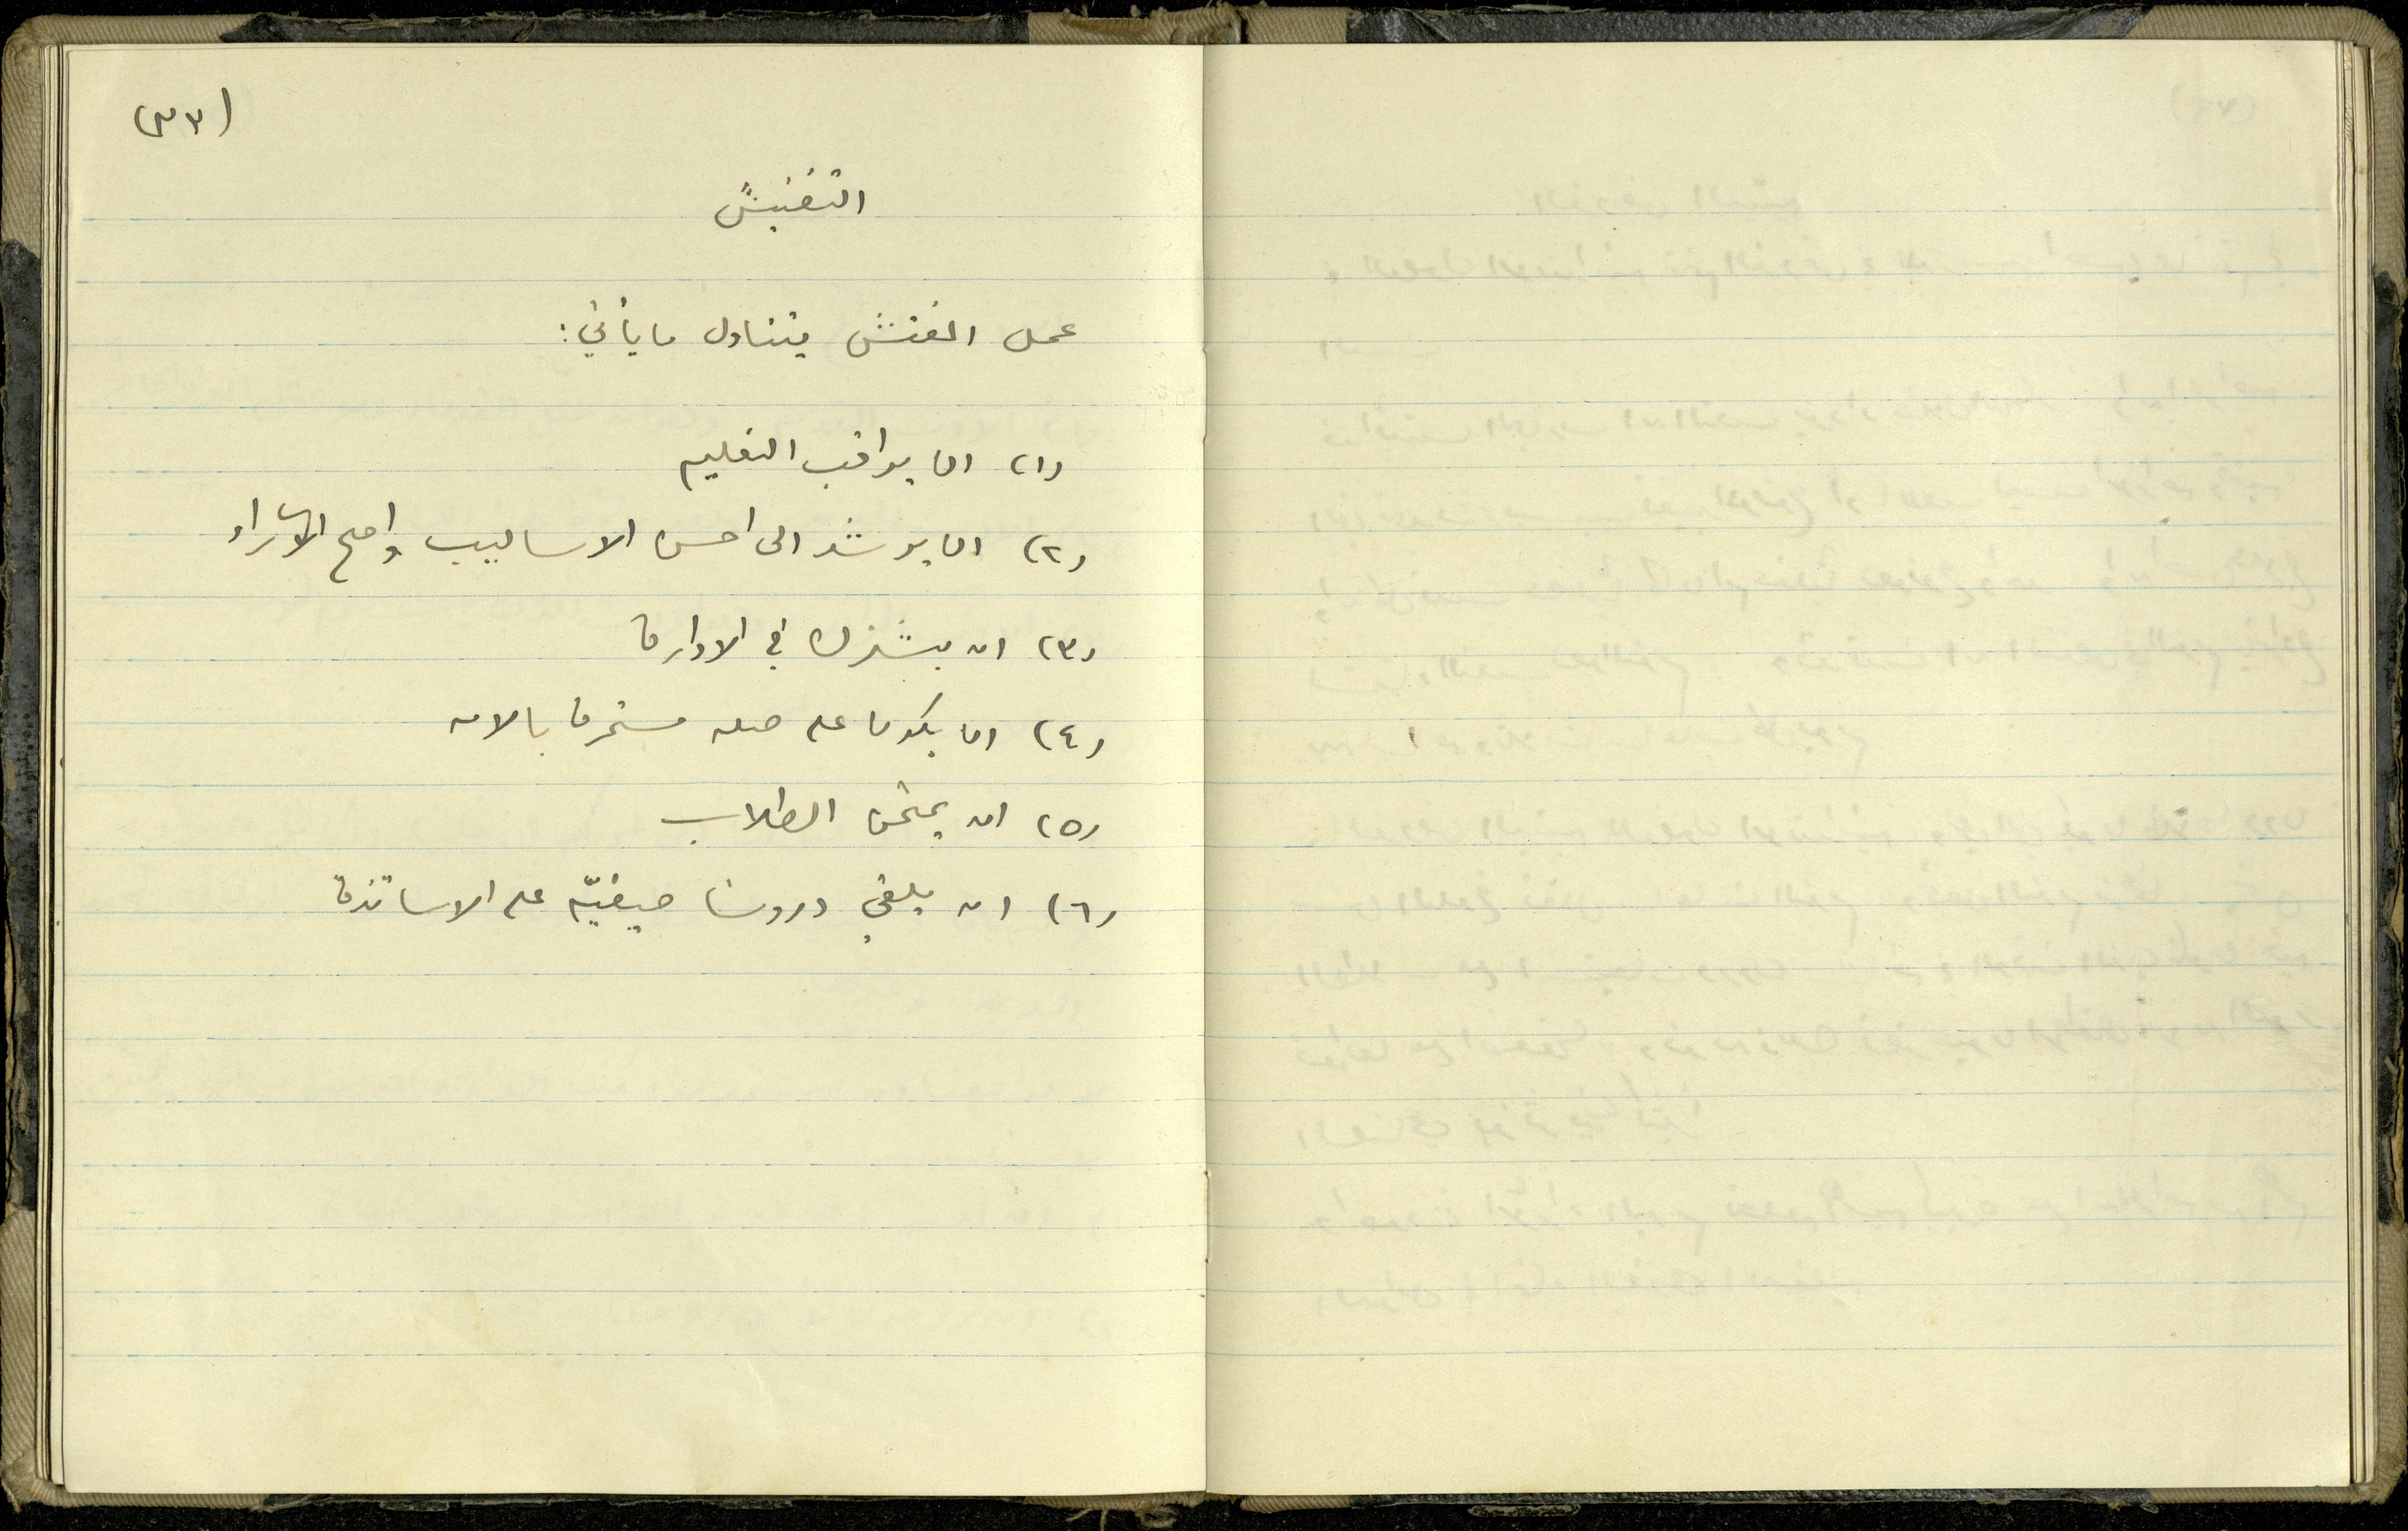 (٣٧)
التفتيش
عمل المفتش يتناول ما يأتي:
(١) ان يراقب التعليم
(٢) ان يرشد الى احسن الاساليب واصح الآراء
(٣) ان يشترك في الادارة
(٤) ان يكون على صلة مستمرة بالامة
(٥) ان يمتحن الطلاب
(٦) ان يلقي دروسا صيفيّة على الاساتذة